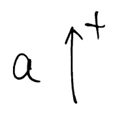 a ↑ +